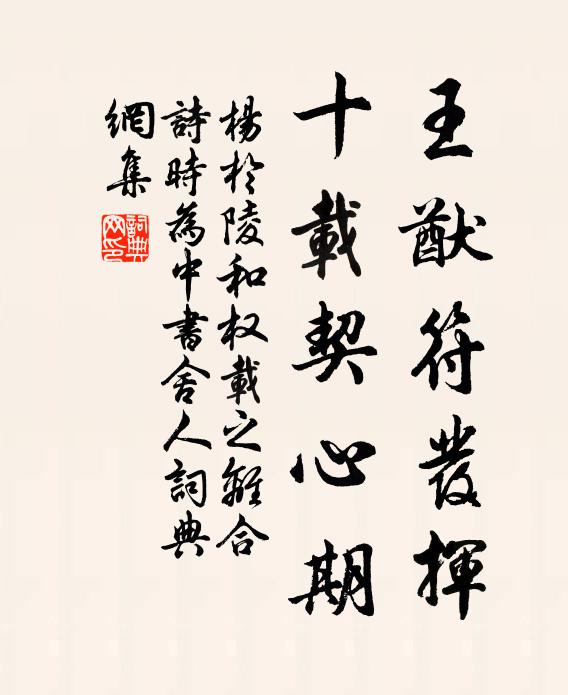 王猷符發揮
十載契心期
楊於陵和权載之離合
詩時為中書舍人詞典
網集
詞典網印